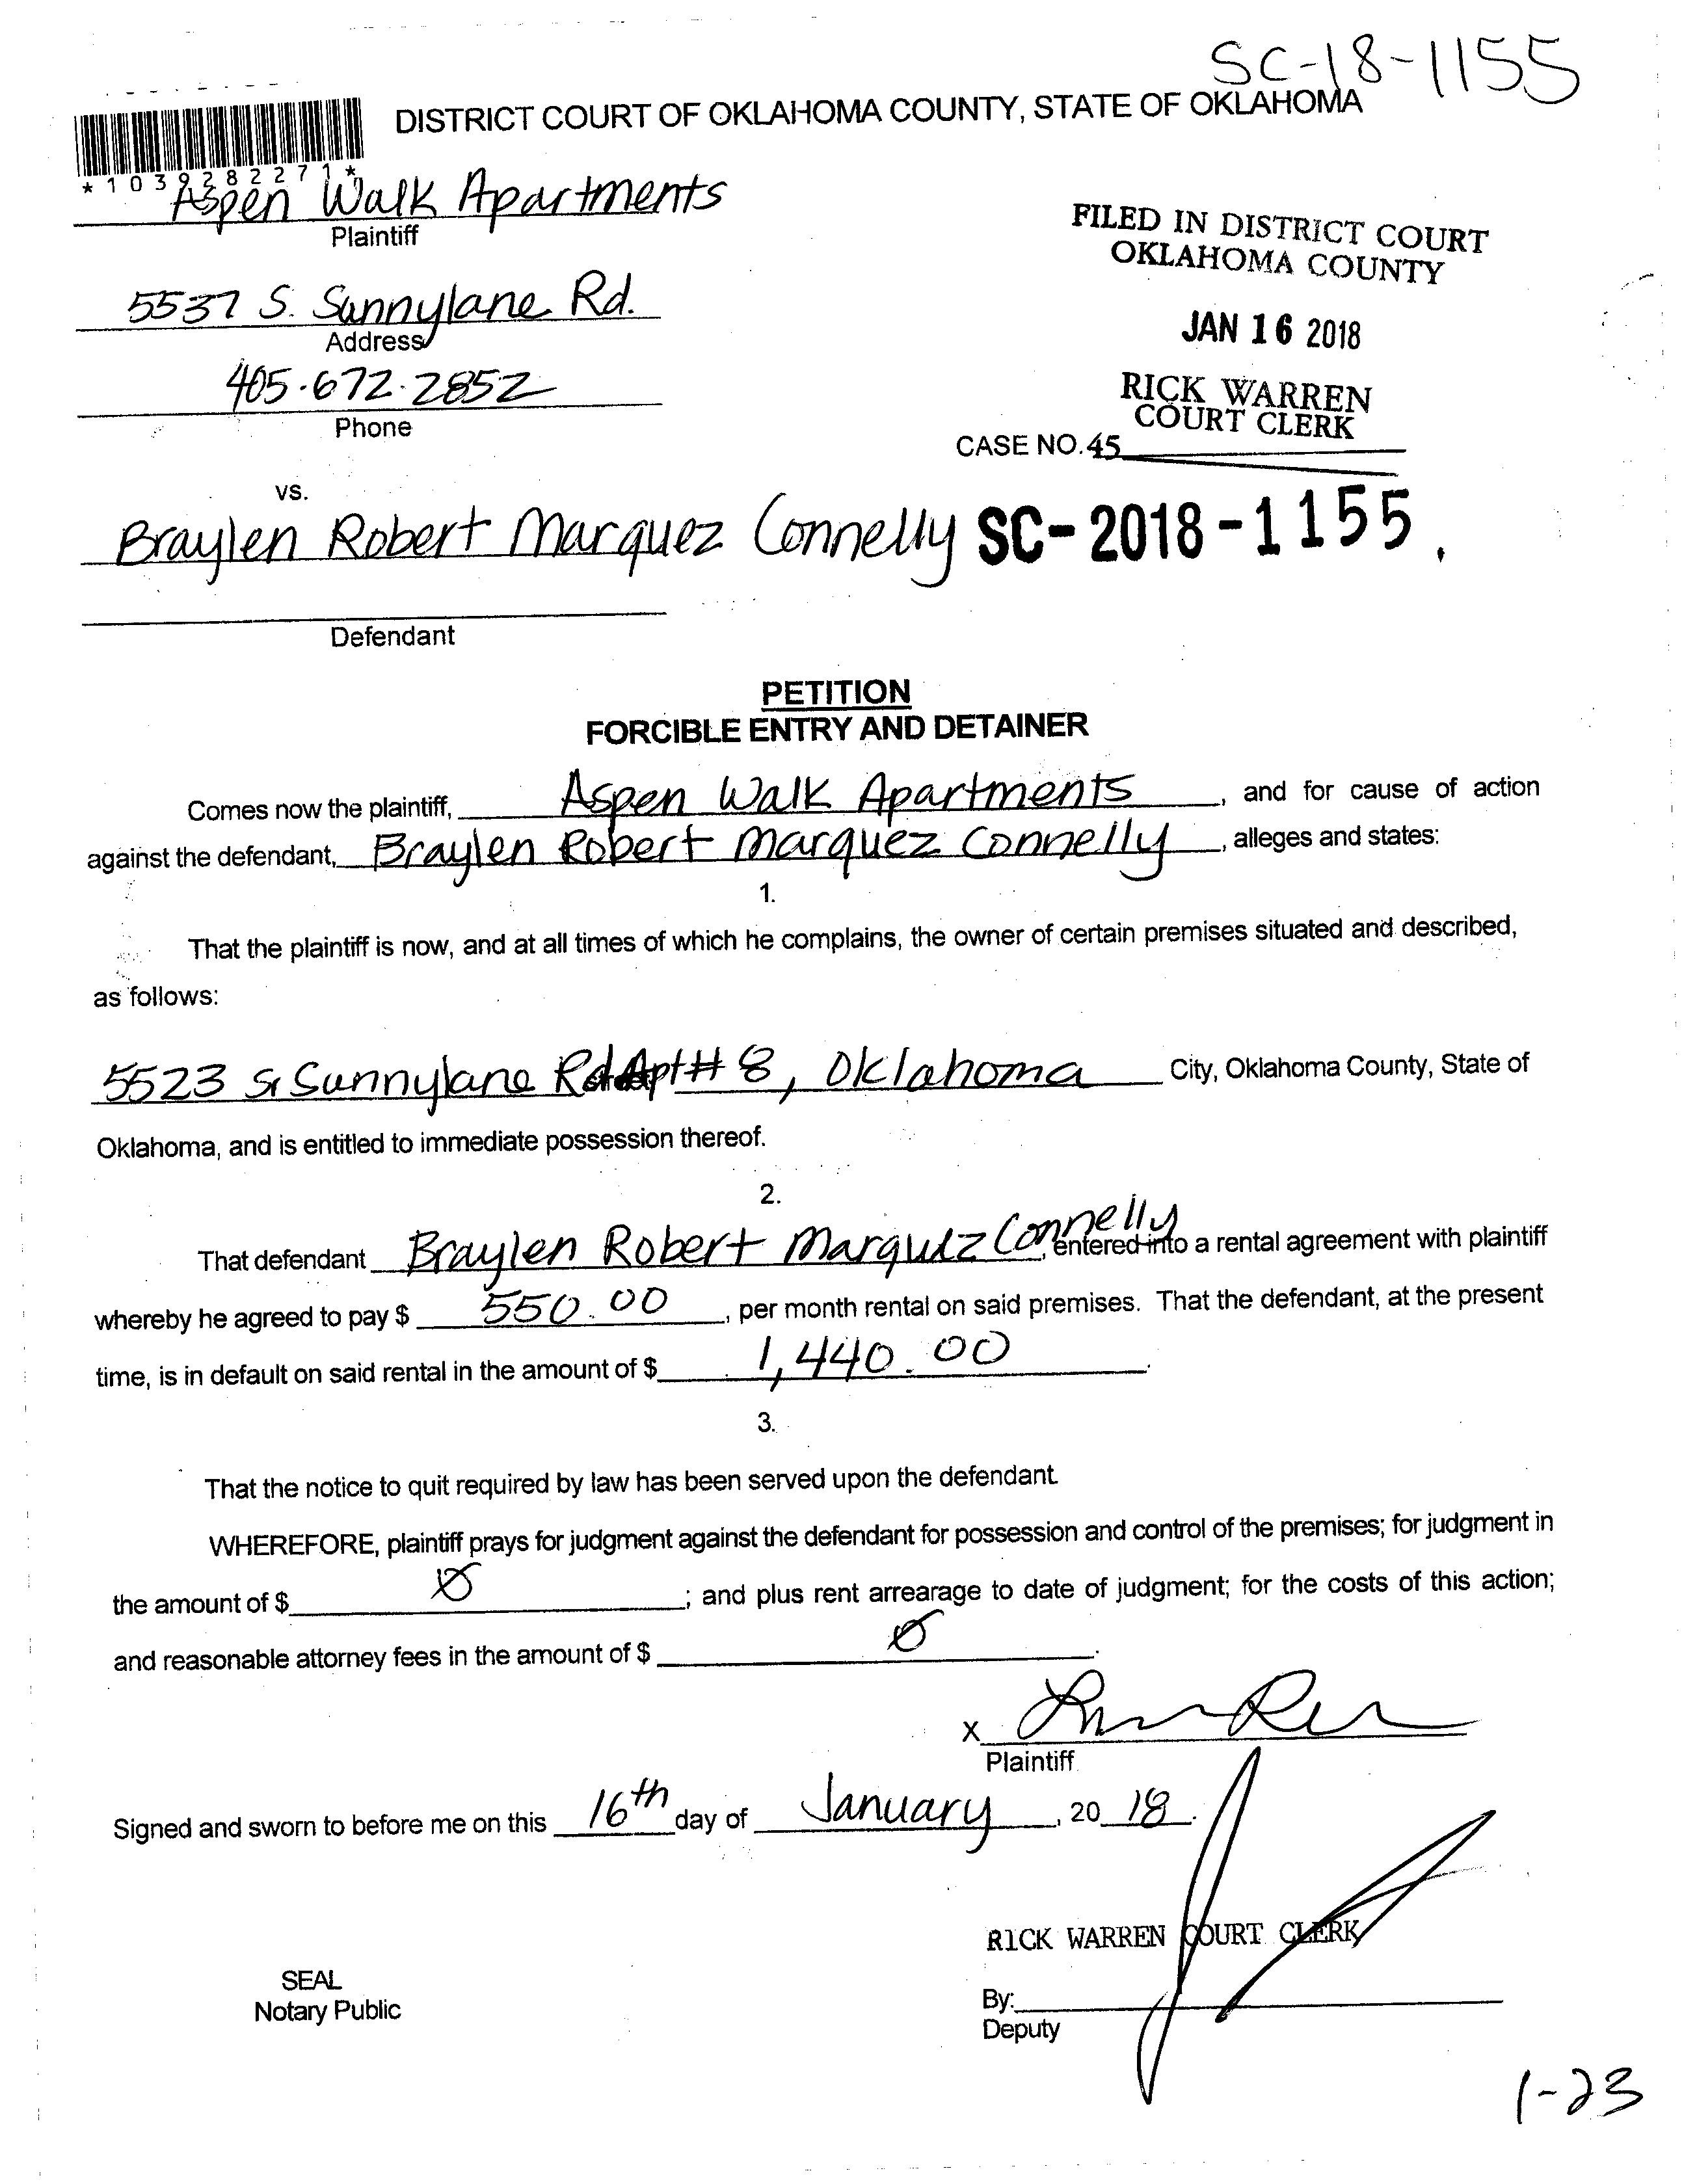 SC-18-1155
DISTRICT COURT OF OKLAHOMA COUNTY, STATE OF OKLAHOMA
* 1 0 3 9 2 8 2 2 7 1 *
Aspen Walk Apartments
Plaintiff
FILED IN DISTRICT COURT
OKLAHOMA COUNTY
5537 S. Sunnylane Rd.
Address
JAN 16 2018
405-672-2852
Phone
RICK WARREN
COURT CLERK
CASE NO. 45
vs.
Braylen Robert Marquez Connelly SC-2018-1155
Defendant
PETITION
FORCIBLE ENTRY AND DETAINER
Comes now the plaintiff, Aspen Walk Apartments, and for cause of action
against the defendant, Braylen Robert Marquez Connelly, alleges and states:
1.
That the plaintiff is now, and at all times of which he complains, the owner of certain premises situated and described,
as follows:
5523 S. Sunnylane Rd Apt# 8, Oklahoma City, Oklahoma County, State of
Oklahoma, and is entitled to immediate possession thereof.
2.
That defendant Braylen Robert Marquez Connelly, entered into a rental agreement with plaintiff
whereby he agreed to pay $ 550.00, per month rental on said premises. That the defendant, at the present
time, is in default on said rental in the amount of $ 1,440.00.
3.
That the notice to quit required by law has been served upon the defendant.
WHEREFORE, plaintiff prays for judgment against the defendant for possession and control of the premises; for judgment in
the amount of $ Ø; and plus rent arrearage to date of judgment; for the costs of this action;
and reasonable attorney fees in the amount of $ Ø.
X
Plaintiff
Signed and sworn to before me on this 16th day of January, 2018.
RICK WARREN COURT CLERK
SEAL
Notary Public
By:
Deputy
1-23